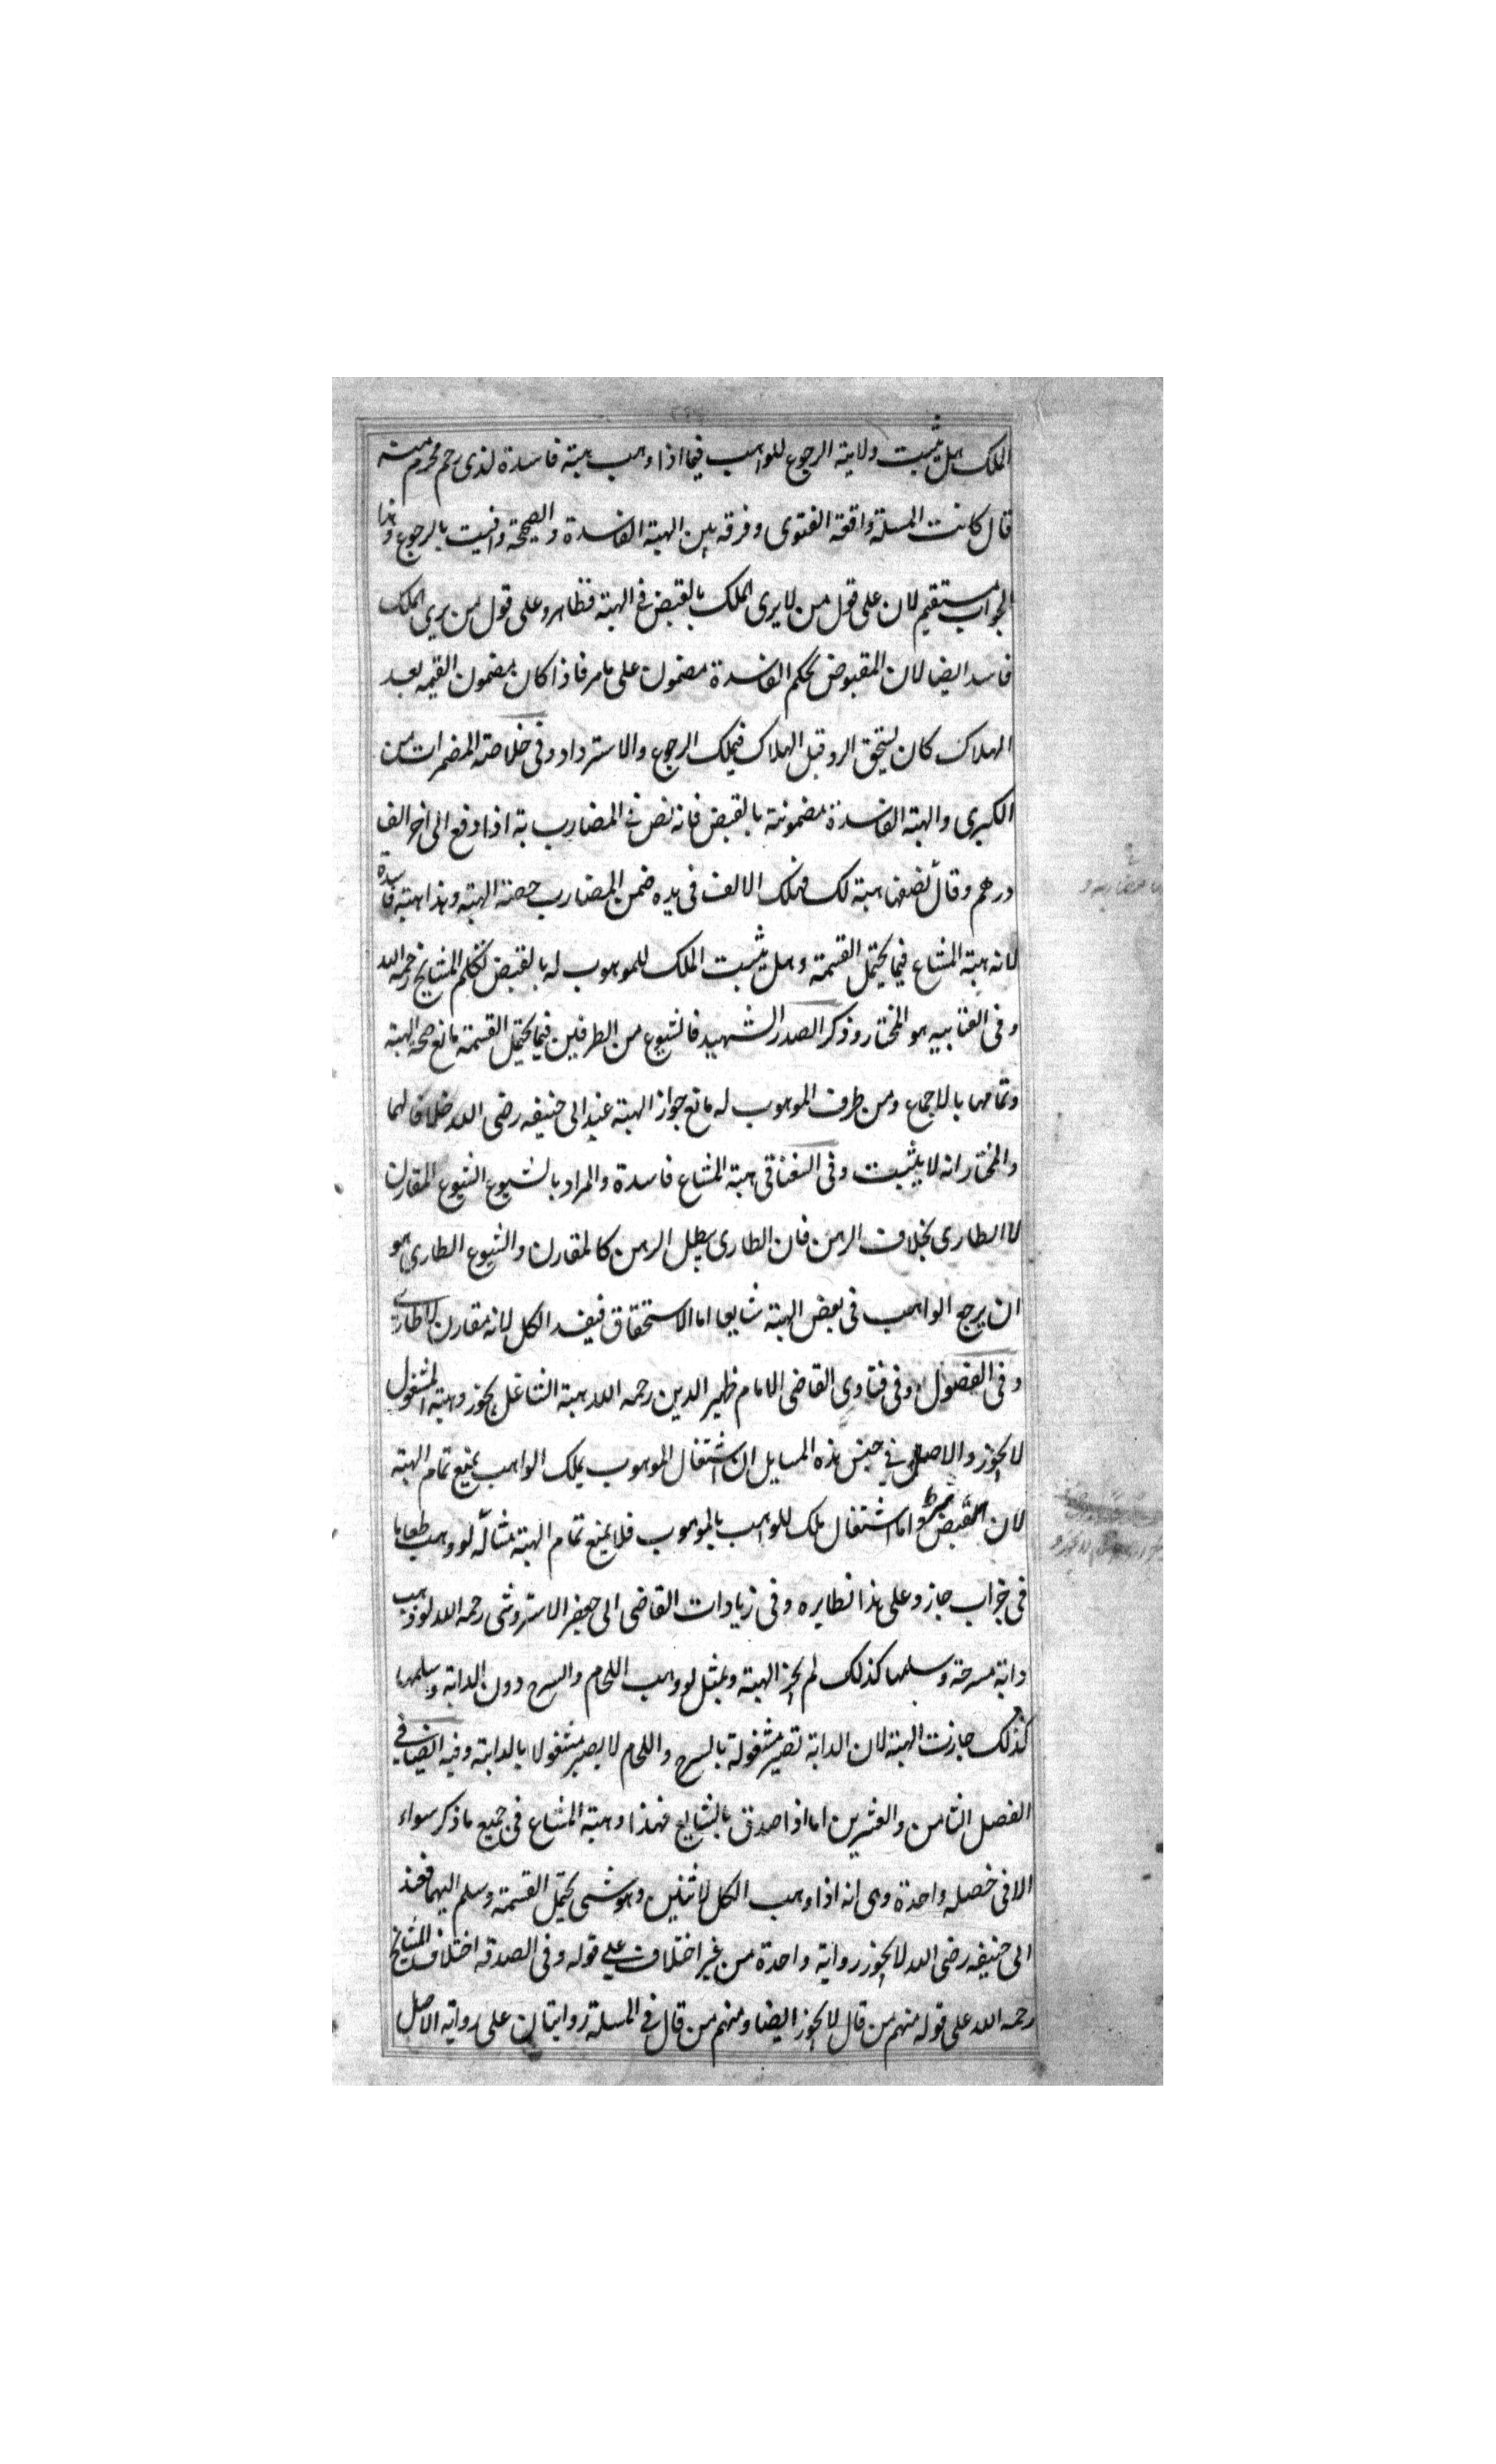 الملك هل يثبت ولاية الرجوع للواهب فيما اذا وهب هبة فاسدة لذى رحم محرم منه
قال كانت المسلة واقعة الفتوى وفرقه بين الهبة الفاسدة والصحيحة وافتيت بالرجوع وهذا
الجواب مستقيم لان على قول من لا يرى الملك بالقبض فى الهبة فظاهر وعلى قول من يرى الملك
فاسد ايضا لان المقبوض بحكم الفاسدة مضمول على ما مر فاذا كان مضمون القيمه بعد
الهلاك كان يستحق الرد قبل الهلاك فيملك الرجوع والاسترداد وفى خلاصة المضمرات من
الكبرى والهبة الفاسدة مضمونة بالقبض فانه نص فى المضاربة اذا دفع الى اخر الف
درهم وقال نصفها هبة لك فهلك الالف فى يده ضمن المضارب حصة الهبة وهذا هبة فاسدة
لانه هبة المشاع فيما يحتمل القسمة وهل يثبت الملك للموهوب له بالقبض تكلم المشايخ رحمه الله
وفى العتابيه هو المختار وذكر الصدر الشهيد فالشيوع من الطرفين فيما يحتمل القسمة مانع صحة الهبة
وتمامها بالاجماع ومن طرف الموهوب له مانع جواز الهبة عند ابى حنيفه رضى الله خلافا لهما
والمختار انه لا يثبت وفى السغناقى هبة المشاع فاسدة والمراد بالشيوع الشيوع المقارن
لا الطارى بخلاف الرهن فان الطارى يبطل الرهن كالمقارن والشيوع الطارى هو
ان يرجع الواهب فى بعض الهبة شايعا اما الاستحقاق فيفسد الكل لانه مقارن لا طارى
وفى الفصول وفى فتاوى القاضى الامام ظهير الدين رحمه الله هبة الشاغل يجوز وهبة المشغول
لا يجوز والاصل فى جنس هذه المسايل ان اشتغال الموهوب بملك الواهب يمنع تمام الهبة
لان القبض شرط واما اشتغال ملك للواهب بالموهوب فلا يمنع تمام الهبة مثاله لو وهب طعاما
فى جراب جاز وعلى هذا نظايره وفى زيادات القاضى ابى جعفر الاستروشنى رحمه الله لو وهب
دابة مسرجة وسلمها كذلك لم يجز الهبة وبمثل لو وهب اللجام والسرج دون الدابة وسلمها
كذلك جازت الهبة لان الدابة تصير مشغولة بالسرج واللجام لا يصير مشغولا بالدابة وفيه ايضا فى
الفصل الثامن والعشرين اما اذا صدق بالشايع فهذا وهبة المشاع فى جميع ما ذكر سواء
الا فى خصله واحدة وهى انه اذا وهب الكل لاثنين وهو شى يحتمل القسمة وسلم اليهما فعند
ابى حنيفه رضى الله لا يجوز رواية واحدة من غير اختلاف على قوله وفى الصدقه اختلاف المشايخ
رحمه الله على قوله منهم من قال لا يجوز ايضا ومنهم من قال فى المسلة روايتان على رواية الاصل